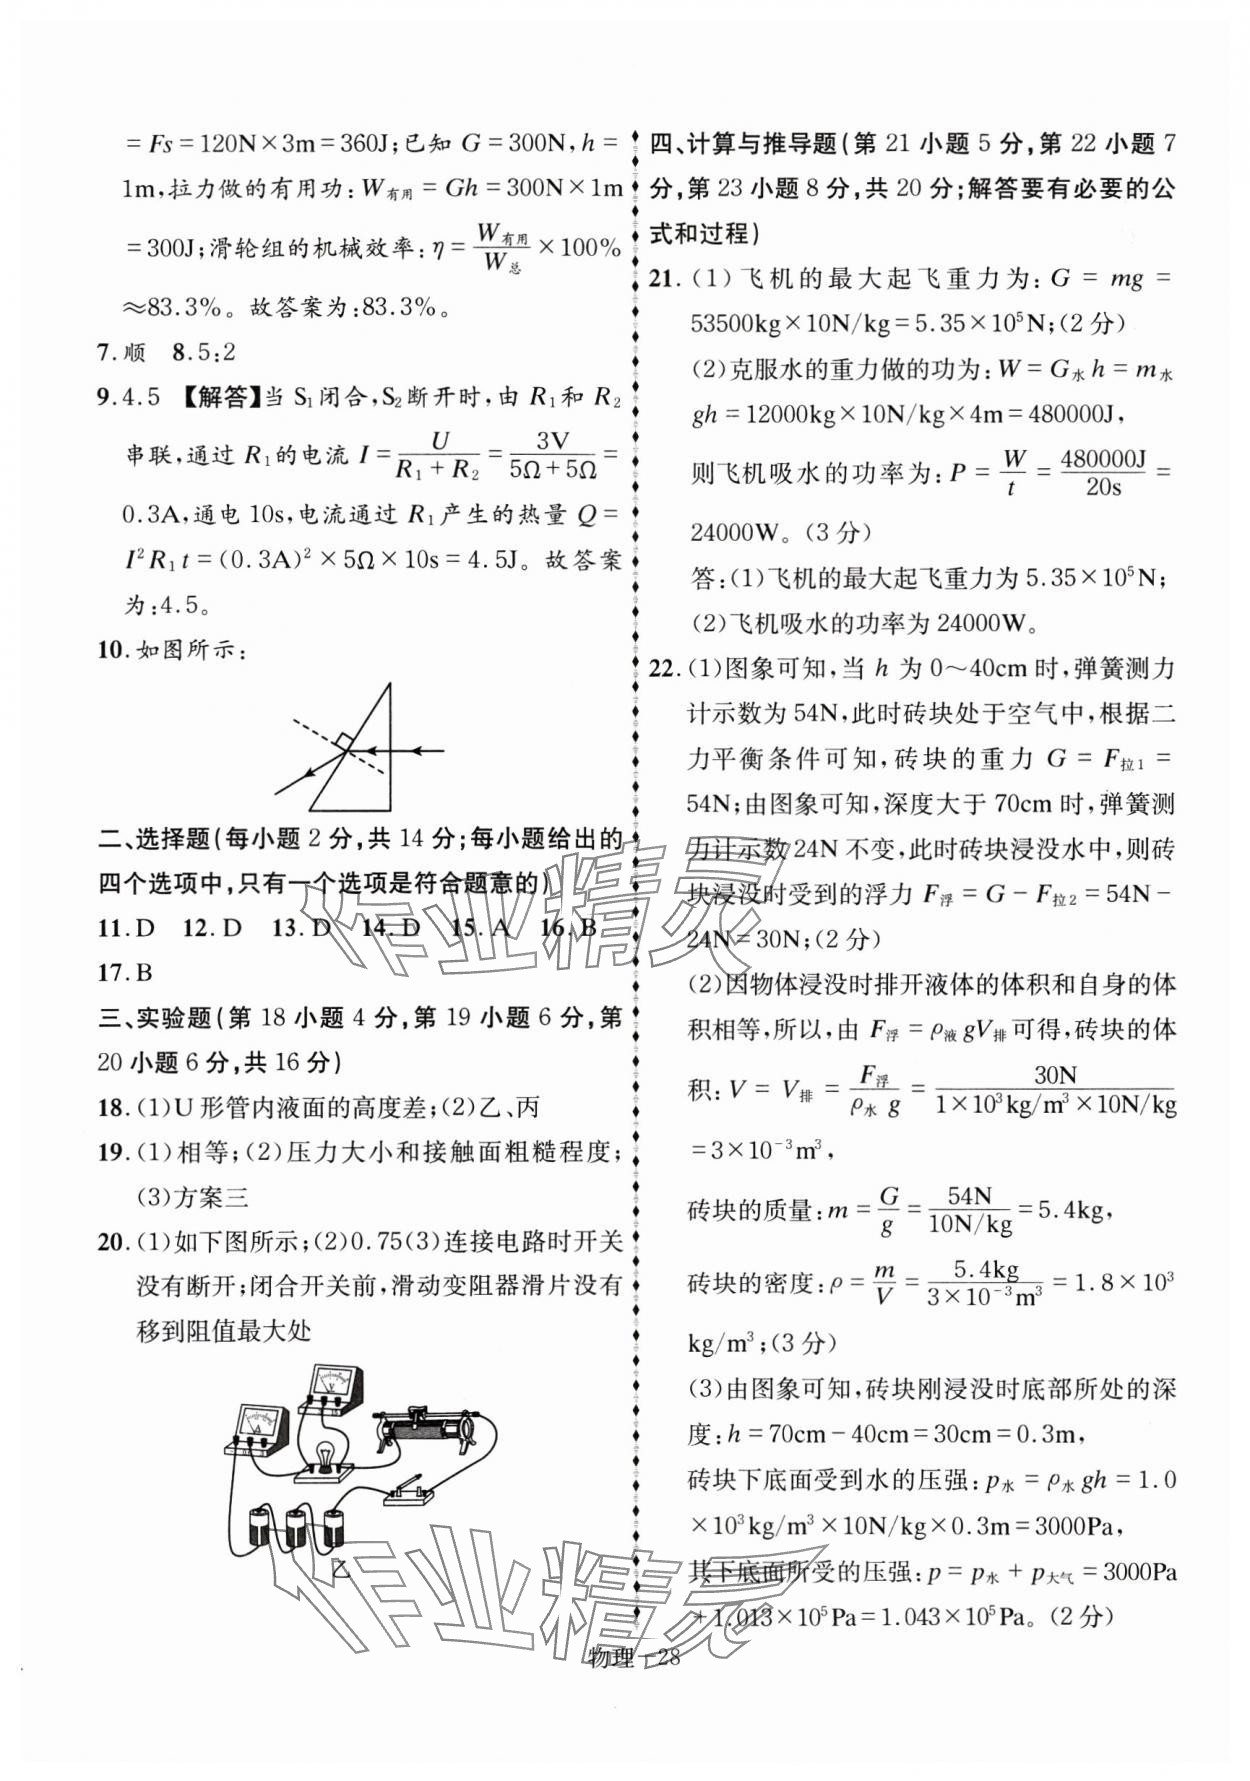 =Fs=120N×3m=360J;已知 G=300N,h=
1m,拉力做的有用功:W有用=Gh=300N×1m
=300J;滑轮组的机械效率:η=W有用/W总×100%
≈83.3%。故答案为:83.3%。
7.顺 8.5:2
9.4.5 【解答】当 S₁闭合,S₂断开时,由 R₁和 R₂
串联,通过 R₁的电流 I=U/(R₁+R₂)=3V/(5Ω+5Ω)=
0.3A,通电 10s,电流通过 R₁产生的热量 Q=
I²R₁t=(0.3A)²×5Ω×10s=4.5J。故答案
为:4.5。
10.如图所示:
二、选择题(每小题 2 分,共 14 分;每小题给出的
四个选项中,只有一个选项是符合题意的)
11.D 12.D 13.D 14.D 15.A 16.B
17.B
三、实验题(第 18 小题 4 分,第 19 小题 6 分,第
20 小题 6 分,共 16 分)
18.(1)U 形管内液面的高度差;(2)乙、丙
19.(1)相等;(2)压力大小和接触面粗糙程度;
(3)方案三
20.(1)如下图所示;(2)0.75(3)连接电路时开关
没有断开;闭合开关前,滑动变阻器滑片没有
移到阻值最大处
V
A
乙
四、计算与推导题(第 21 小题 5 分,第 22 小题 7
分,第 23 小题 8 分,共 20 分;解答要有必要的公
式和过程)
21.(1)飞机的最大起飞重力为:G=mg=
53500kg×10N/kg=5.35×10⁵N;(2 分)
(2)克服水的重力做的功为:W=G水h=m水
gh=12000kg×10N/kg×4m=480000J,
则飞机吸水的功率为:P=W/t=480000J/20s=
24000W。(3 分)
答:(1)飞机的最大起飞重力为 5.35×10⁵N;
(2)飞机吸水的功率为 24000W。
22.(1)图象可知,当 h 为 0～40cm 时,弹簧测力
计示数为 54N,此时砖块处于空气中,根据二
力平衡条件可知,砖块的重力 G=F拉1=
54N;由图象可知,深度大于 70cm 时,弹簧测
力计示数 24N 不变,此时砖块浸没水中,则砖
块浸没时受到的浮力 F浮=G-F拉2=54N-
24N=30N;(2 分)
(2)因物体浸没时排开液体的体积和自身的体
积相等,所以,由 F浮=ρ液gV排可得,砖块的体
积:V=V排=F浮/(ρ水g)=30N/(1×10³kg/m³×10N/kg)
=3×10⁻³m³,
砖块的质量:m=G/g=54N/(10N/kg)=5.4kg,
砖块的密度:ρ=m/V=5.4kg/(3×10⁻³m³)=1.8×10³
kg/m³;(3 分)
(3)由图象可知,砖块刚浸没时底部所处的深
度:h=70cm-40cm=30cm=0.3m,
砖块下底面受到水的压强:p水=ρ水gh=1.0
×10³kg/m³×10N/kg×0.3m=3000Pa,
其下底面所受的压强:p=p水+p大气=3000Pa
+1.013×10⁵Pa=1.043×10⁵Pa。(2 分)
作业精灵
作业精灵
物理—28